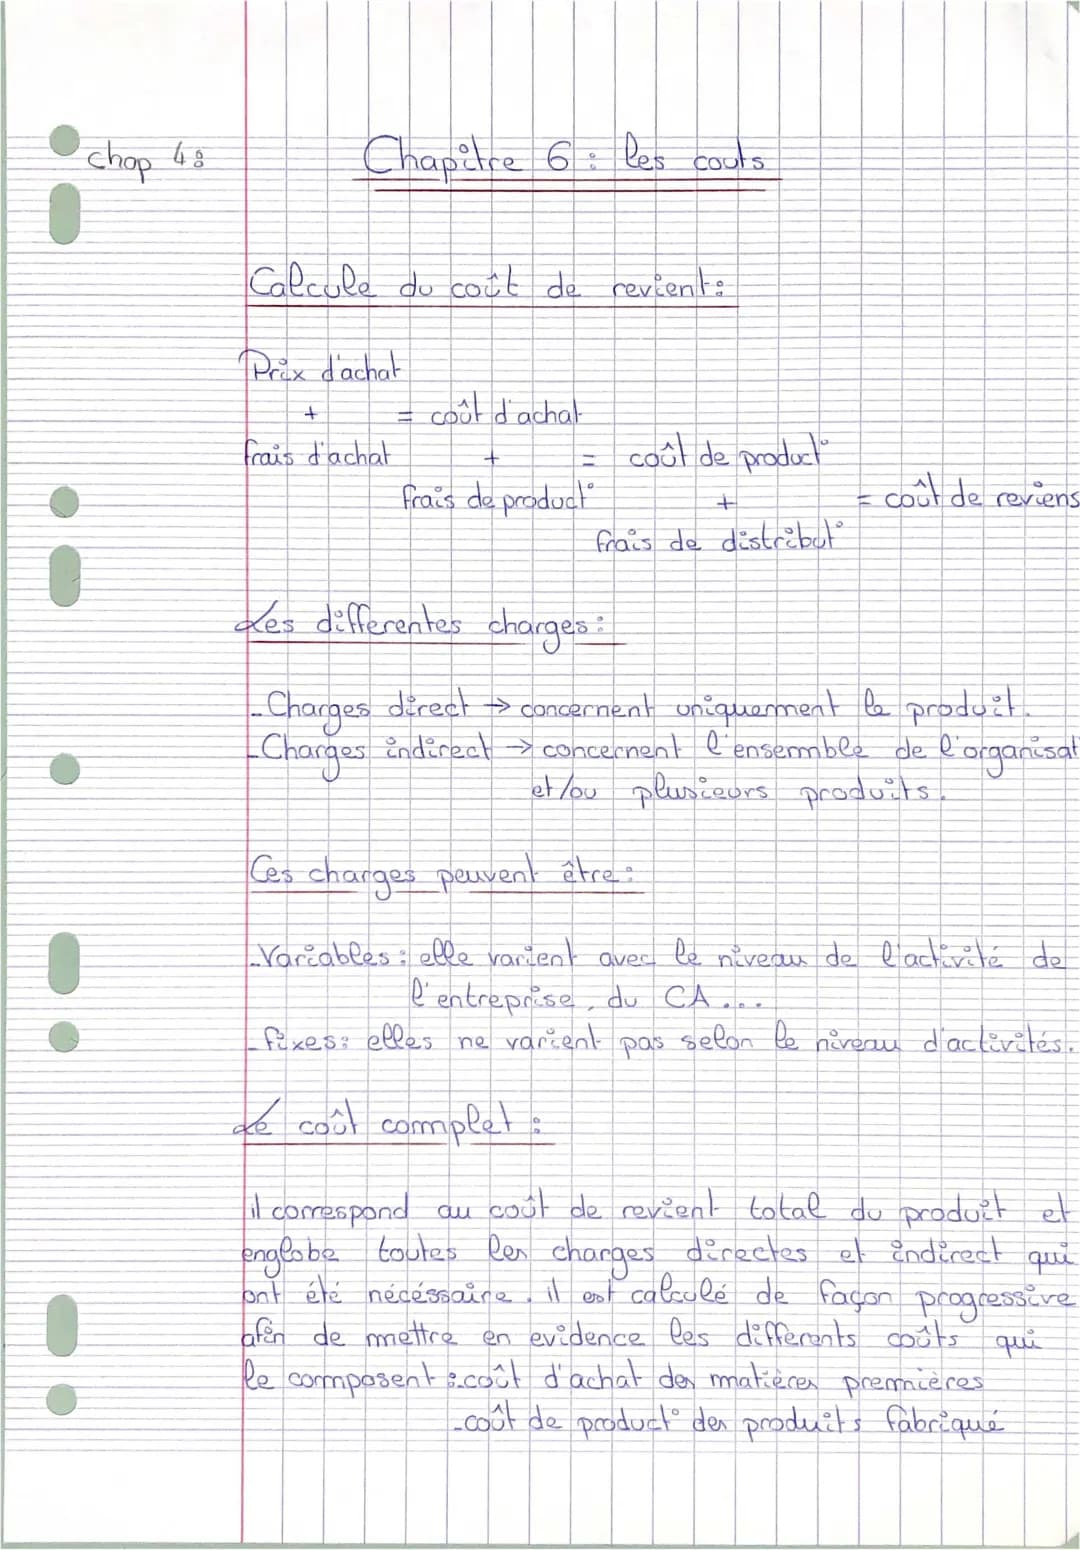 chap 4:
Chapitre 6 : les couts
Calcule du coût de revient:
Prix d'achat
+ = coût d'achat
frais d'achat + = coût de product°
frais de product° + = coût de reviens
frais de distribut°
Les differentes charges:
- Charges direct → concernent uniquement le produit.
- Charges indirect → concernent l'ensemble de l'organisat
et/ou plusieurs produits.
Ces charges peuvent être:
- Variables : elle varient avec le niveau de l'activité de
l'entreprise, du CA...
- fixes: elles ne varient pas selon le niveau d'activités.
Le coût complet :
il correspond au coût de revient total du produit et
englobe toutes les charges directes et indirect qui
ont été nécéssaire. il est calculé de façon progressive
afin de mettre en evidence les differents coûts qui
le composent :-coût d'achat des matières premières
-coût de product° des produits fabriqué